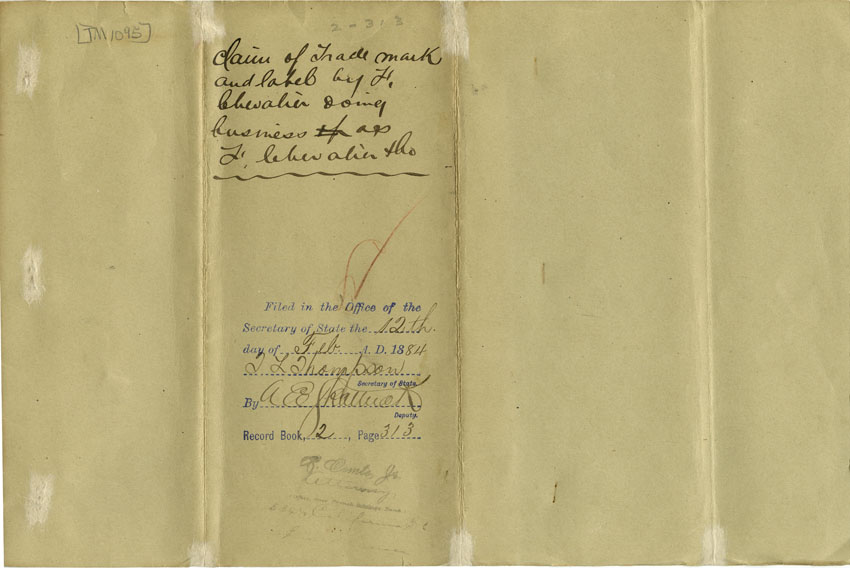 [TM 1095]
2-313
Claim of Trade mark
and label by F.
Chevalier doing
business as
F. Chevalier & Co
Filed in the Office of the
Secretary of State the 12th
day of Feb A. D. 1884
T L Thompson
Secretary of State.
By A E Shattuck
Deputy.
Record Book, 2, Page 313
Comte, Jr.
Attorney,